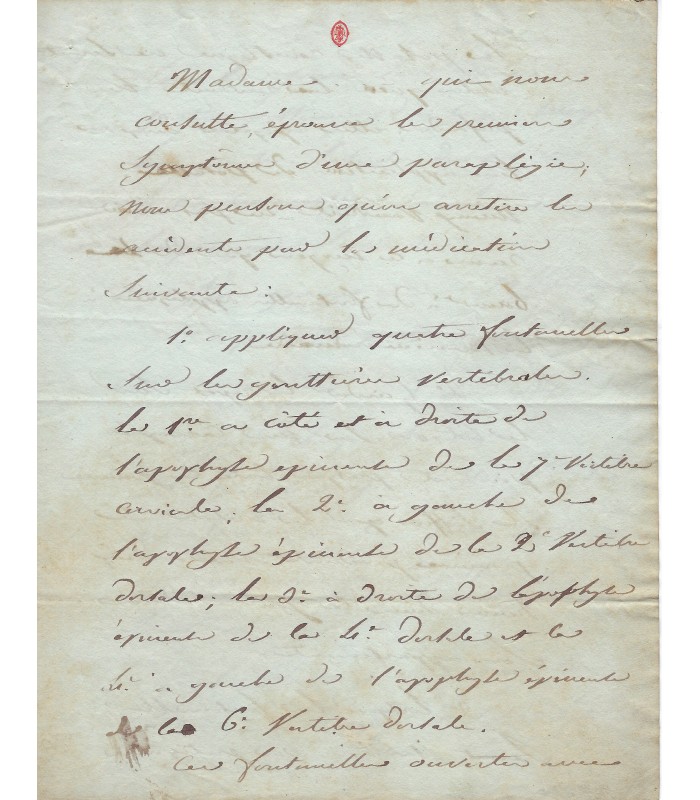 Madame qui nous
consulte, éprouve les premiers
symptômes d'une paraplégie;
nous pensons qu'on arretera les
accidents par la médication
suivante:
1.º appliquer quatre fontanelles
sur les gouttières vertébrales.
la 1re a côté et à droite de
l'apophyse epineuse de la 7e Vertèbre
cervicale; la 2e à gauche de
l'apophyse épineuse de la 2e Vertèbre
dorsale; la 3e à droite de l'apophyse
épineuse de la 4e dorsale et la
4e à gauche de l'apophyse épineuse
de la 6e Vertèbre dorsale.
Ces fontanelles ouvertes avec